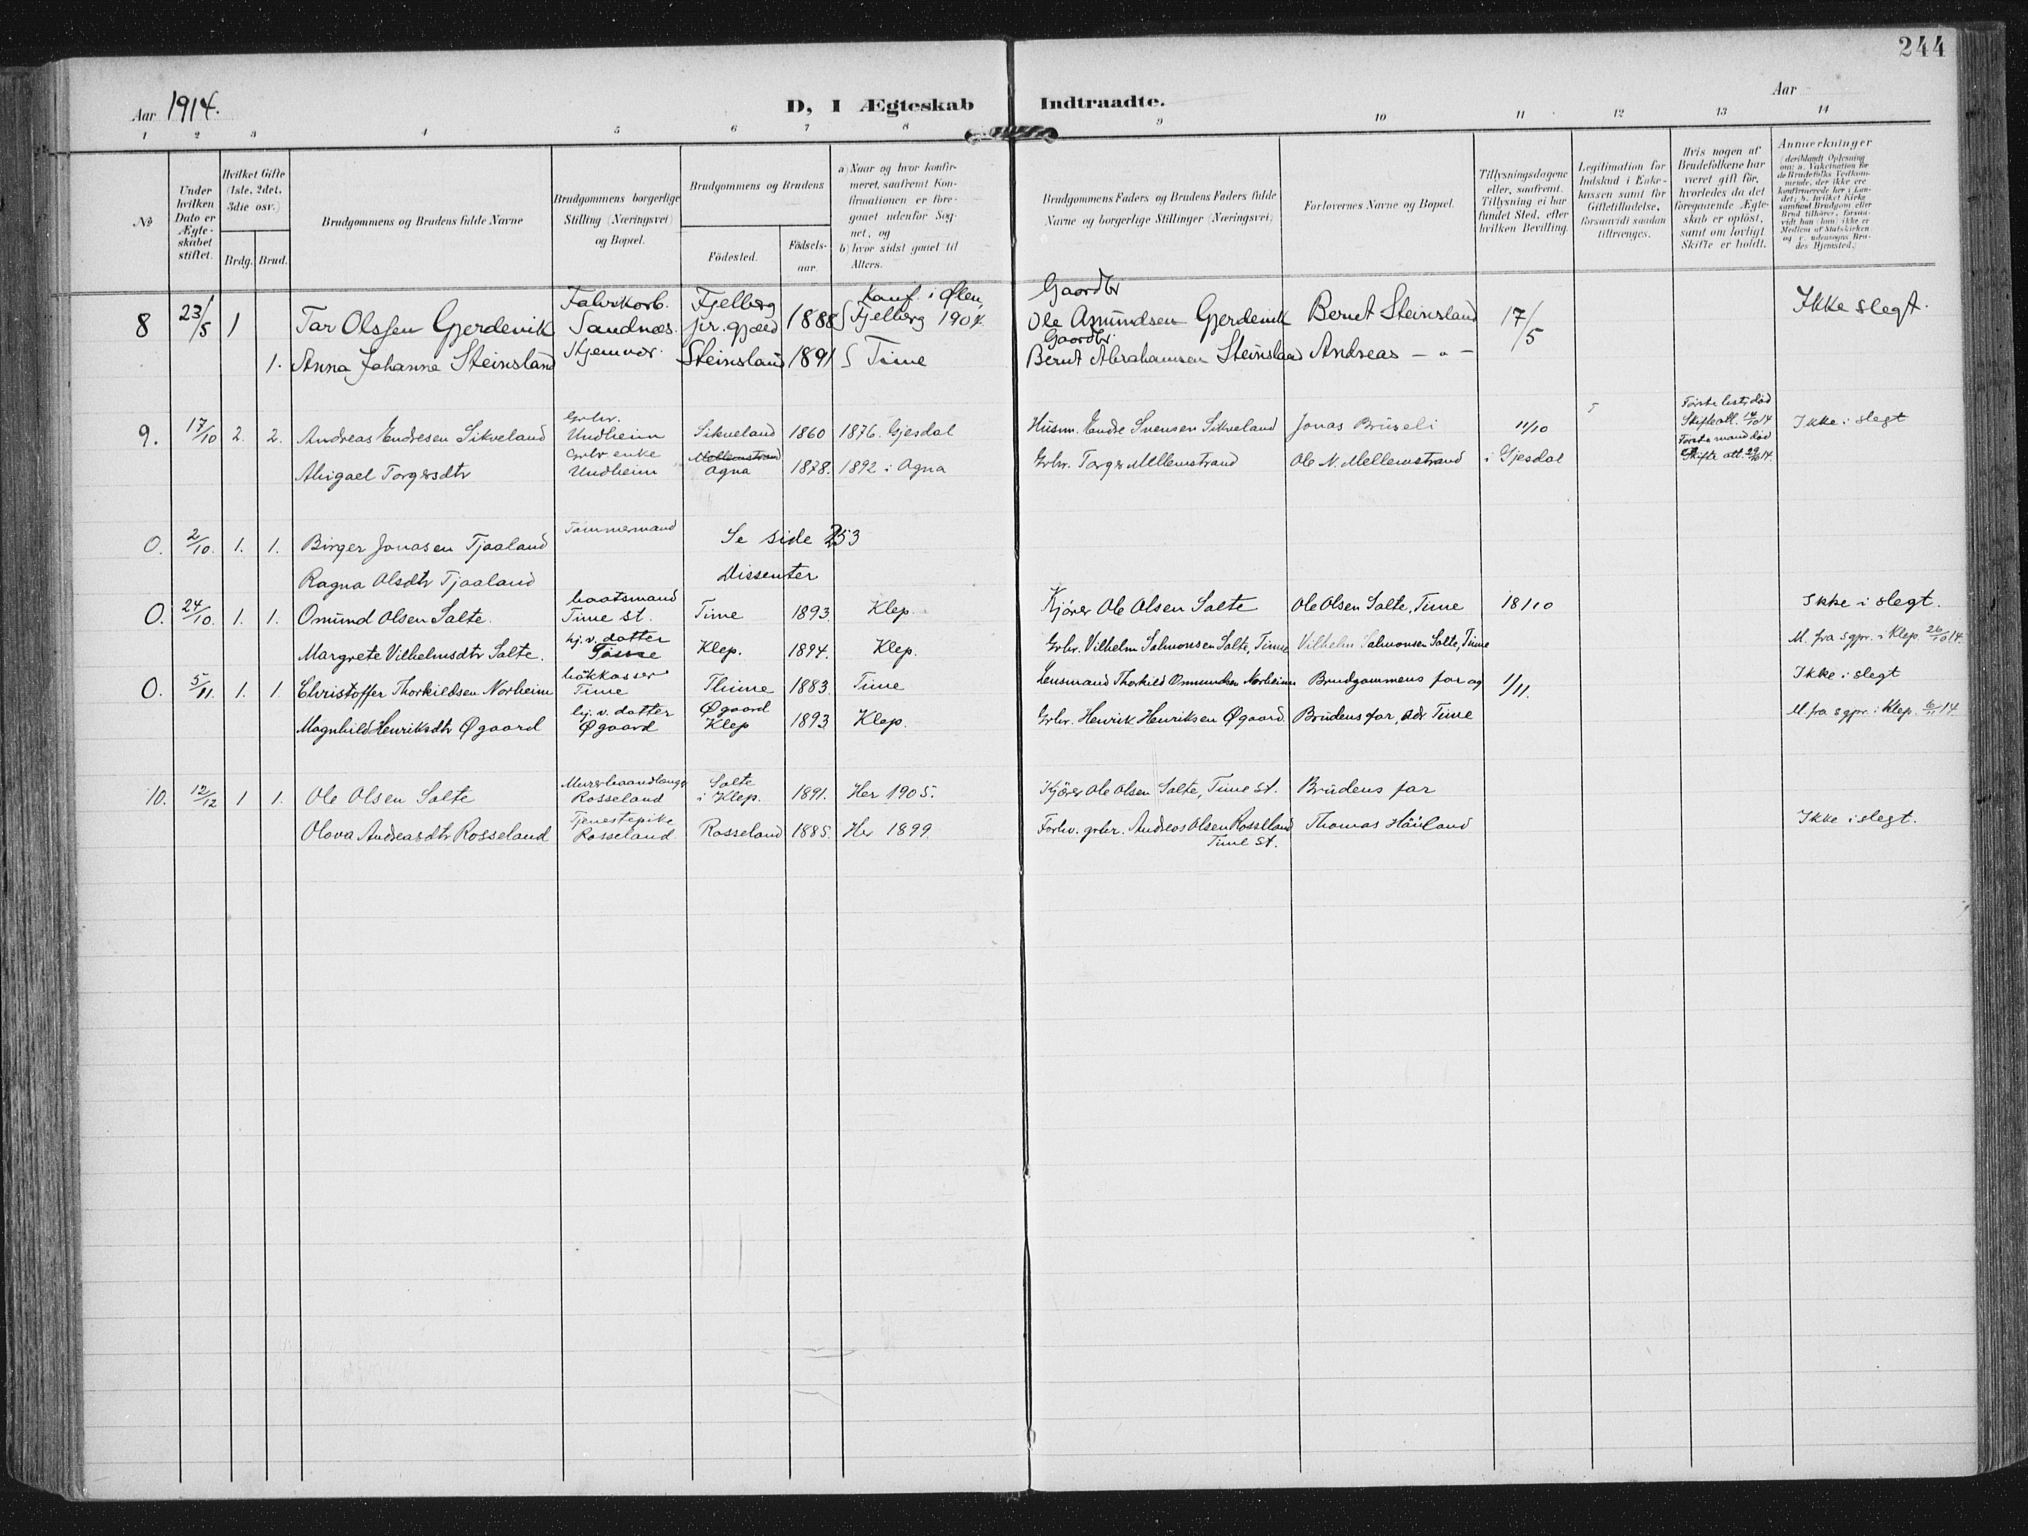 244
Aar 1914.
D, I Ægteskab Indtraadte.
Aar
1 2 3 4 5 6 7 8 9 10 11 12 13 14
No
Under hvilken Dato er Ægteskabet stiftet.
Hvilket Gifte (1ste, 2det, 3die osv.)
Brdg. Brud.
Brudgommens og Brudens fulde Navne
Brudgommens borgerlige Stilling (Næringsvei) og Bopæl.
Brudgommens og Brudens
Födested.
Födsels-aar.
a) Naar og hvor konfirmeret, saafremt Konfirmationen er foregaaet udenfor Sognet, og
b) hvor sidst gaaet til Alters.
Brudgommens Faders og Brudens Faders fulde Navne og borgerlige Stillinger (Næringsvei)
Forlovernes Navne og Bopæl.
Tillysningsdagene eller, saafremt Tillysning ei har fundet Sted, efter hvilken Bevilling.
Legitimation for Indskud i Enkekassen samt for Giftetilladelse, forsaavidt saadan tiltrænges.
Hvis nogen af Brudefolkene har været gift før, hvorledes da det foregaaende Ægteskab er opløst, samt om lovligt Skifte er holdt.
Anmærkninger
8 23/5 1 Tor Olsen Gjerdevik Sandnæs Fjelberg 1888 Konf. i Ølen, Fjelberg 1904. Gaardbr Ole Amundsen Gjerdevik Bernt Steinsland 17/5 Ikke slegt.
1. Anna Johanna Steinsland Hjemvær. Steinsland 1891 Time Gaardbr. Bernt Abrahamsen Steinsland Andreas — " —
9. 17/10 2. 2. Andreas Endresen Sikveland Grbr. Undheim Sikveland 1860 1876. Gjesdal Husm. Endre Svensen Sikveland Jonas Brüseli 11/10 Ikke i slegt
Abigael Torgersdtr Grbr enke Undheim Mellemstrand Ogna 1878. 1892 i Ogna Grbr. Torger Mellemstrand Ole N. Mellemstrand i Gjesdal
0. 2/10. 1. 1. Birger Jonasen Tjaaland Tømmermand Se side 253
Ragna Olsdtr Tjaaland Dissenter
0. 24/10. 1. 1. Omund Olsen Salte. baatsmand Time st. Time 1893. Klep. Kjører Ole Olsen Salte Ole Olsen Salte, Time 18/10 Ikke i slegt.
Margrete Vilhelmsdtr Salte. hj.v. datter Klep. 1894. Klep. Grbr. Vilhelm Salmonsen Salte, Time Vilhelm Salmonsen Salte, Time M. fra sgpr. i Klep 26/10 14
0. 5/11. 1. 1. Christoffer Thorkildsen Norheim Time Thime 1883. Time Lensmand Thorkild Osmundsen Norheim Brudgommens far og 1/11. Ikke i slegt
Magnhild Henriksdtr Øgaard hj.v. datter Øgaard Øgaard Klep 1893 Klep. Grbr. Henrik Henriksen Øgaard. Brudens far, adr Time M. fra sgpr. i Klep. 6/11 14.
10. 12/12 1 1. Ole Olsen Salte Murerhaandlanger Rosseland Salte i Klep. 1891. Her 1905. Kjører Ole Olsen Salte, Time st. Brudens far
Olava Andreasdtr Rosseland Tjenestepike Rosseland Rosseland 1885. Her 1899. Forhv. grbr. Andreas Olsen Rosseland Time st. Thomas Håiland Ikke i slegt.